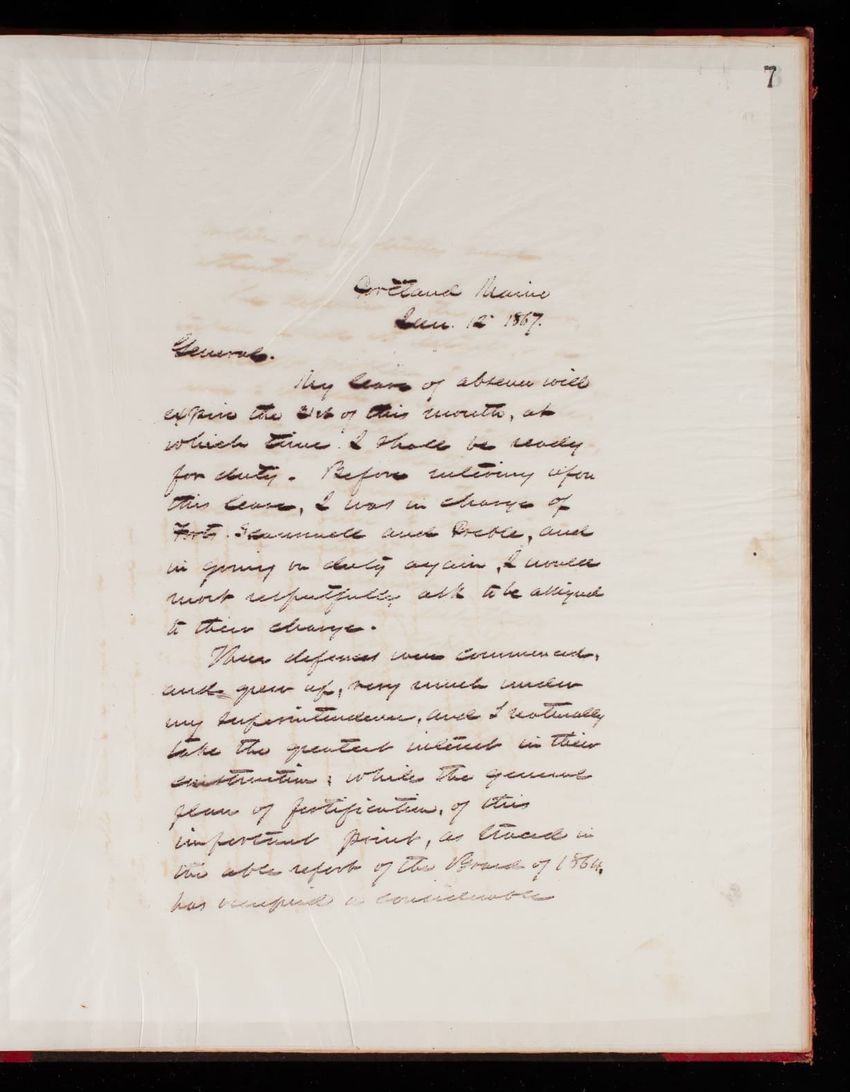 7
Portland Maine
Jan. 12 1867.
General.
My leave of absence will
expire the 31st of this month, at
which time I shall be ready
for duty. Before entering upon
this leave, I was in charge of
Forts Scammell and Preble, and
in going on duty again, I would
most respectfully ask to be assigned
to their charge.
These defenses were commenced,
and grew up, very much under
my superintendence, and I naturally
take the greatest interest in their
construction; while the general
plan of fortification, of this
important point, as traced in
the able report of the Board of 1864,
has occupied a considerable